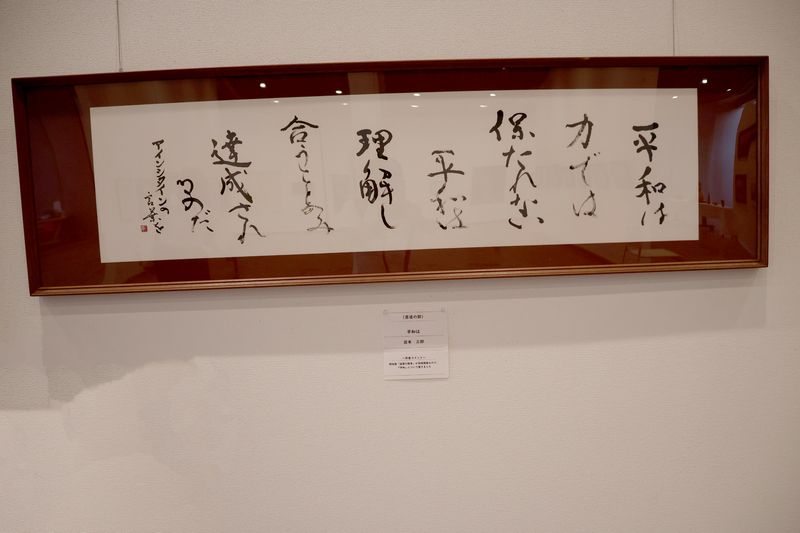 平和は
力では
保たれない
平和は
理解し
合うことのみ
達成され
るのだ
アインシュタインの
言葉を
(書道の部)
平和は